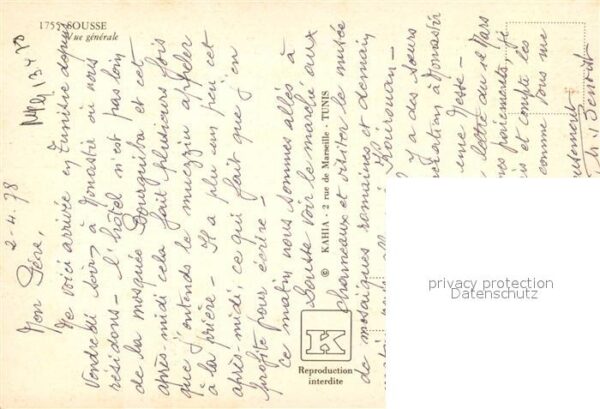 1755 SOUSSE
Vue générale
2-4.78
Mon Père,
Me voici arrivée en Tunisie depuis
vendredi soir, à Monastir où nous
résidons - l'hôtel n'est pas loin
de la mosquée Bourguiba et cet
après-midi cela fait plusieurs fois
que j'entends le muezzin appeler
à la prière - Il a plu un peu cet
après midi, ce qui fait que j'en
profite pour écrire -
Ce matin nous sommes allés à
Sousse voir le marché aux
chameaux et visiter le musée
de mosaïques romaines et demain
Kairouan -
il y a des sœurs
à Monastir
une messe -
lettre du Mars
paiements, si
et compte les
comme tous me
© KAHIA - 2 rue de Marseille - TUNIS
K
Reproduction
interdite
privacy protection
Datenschutz